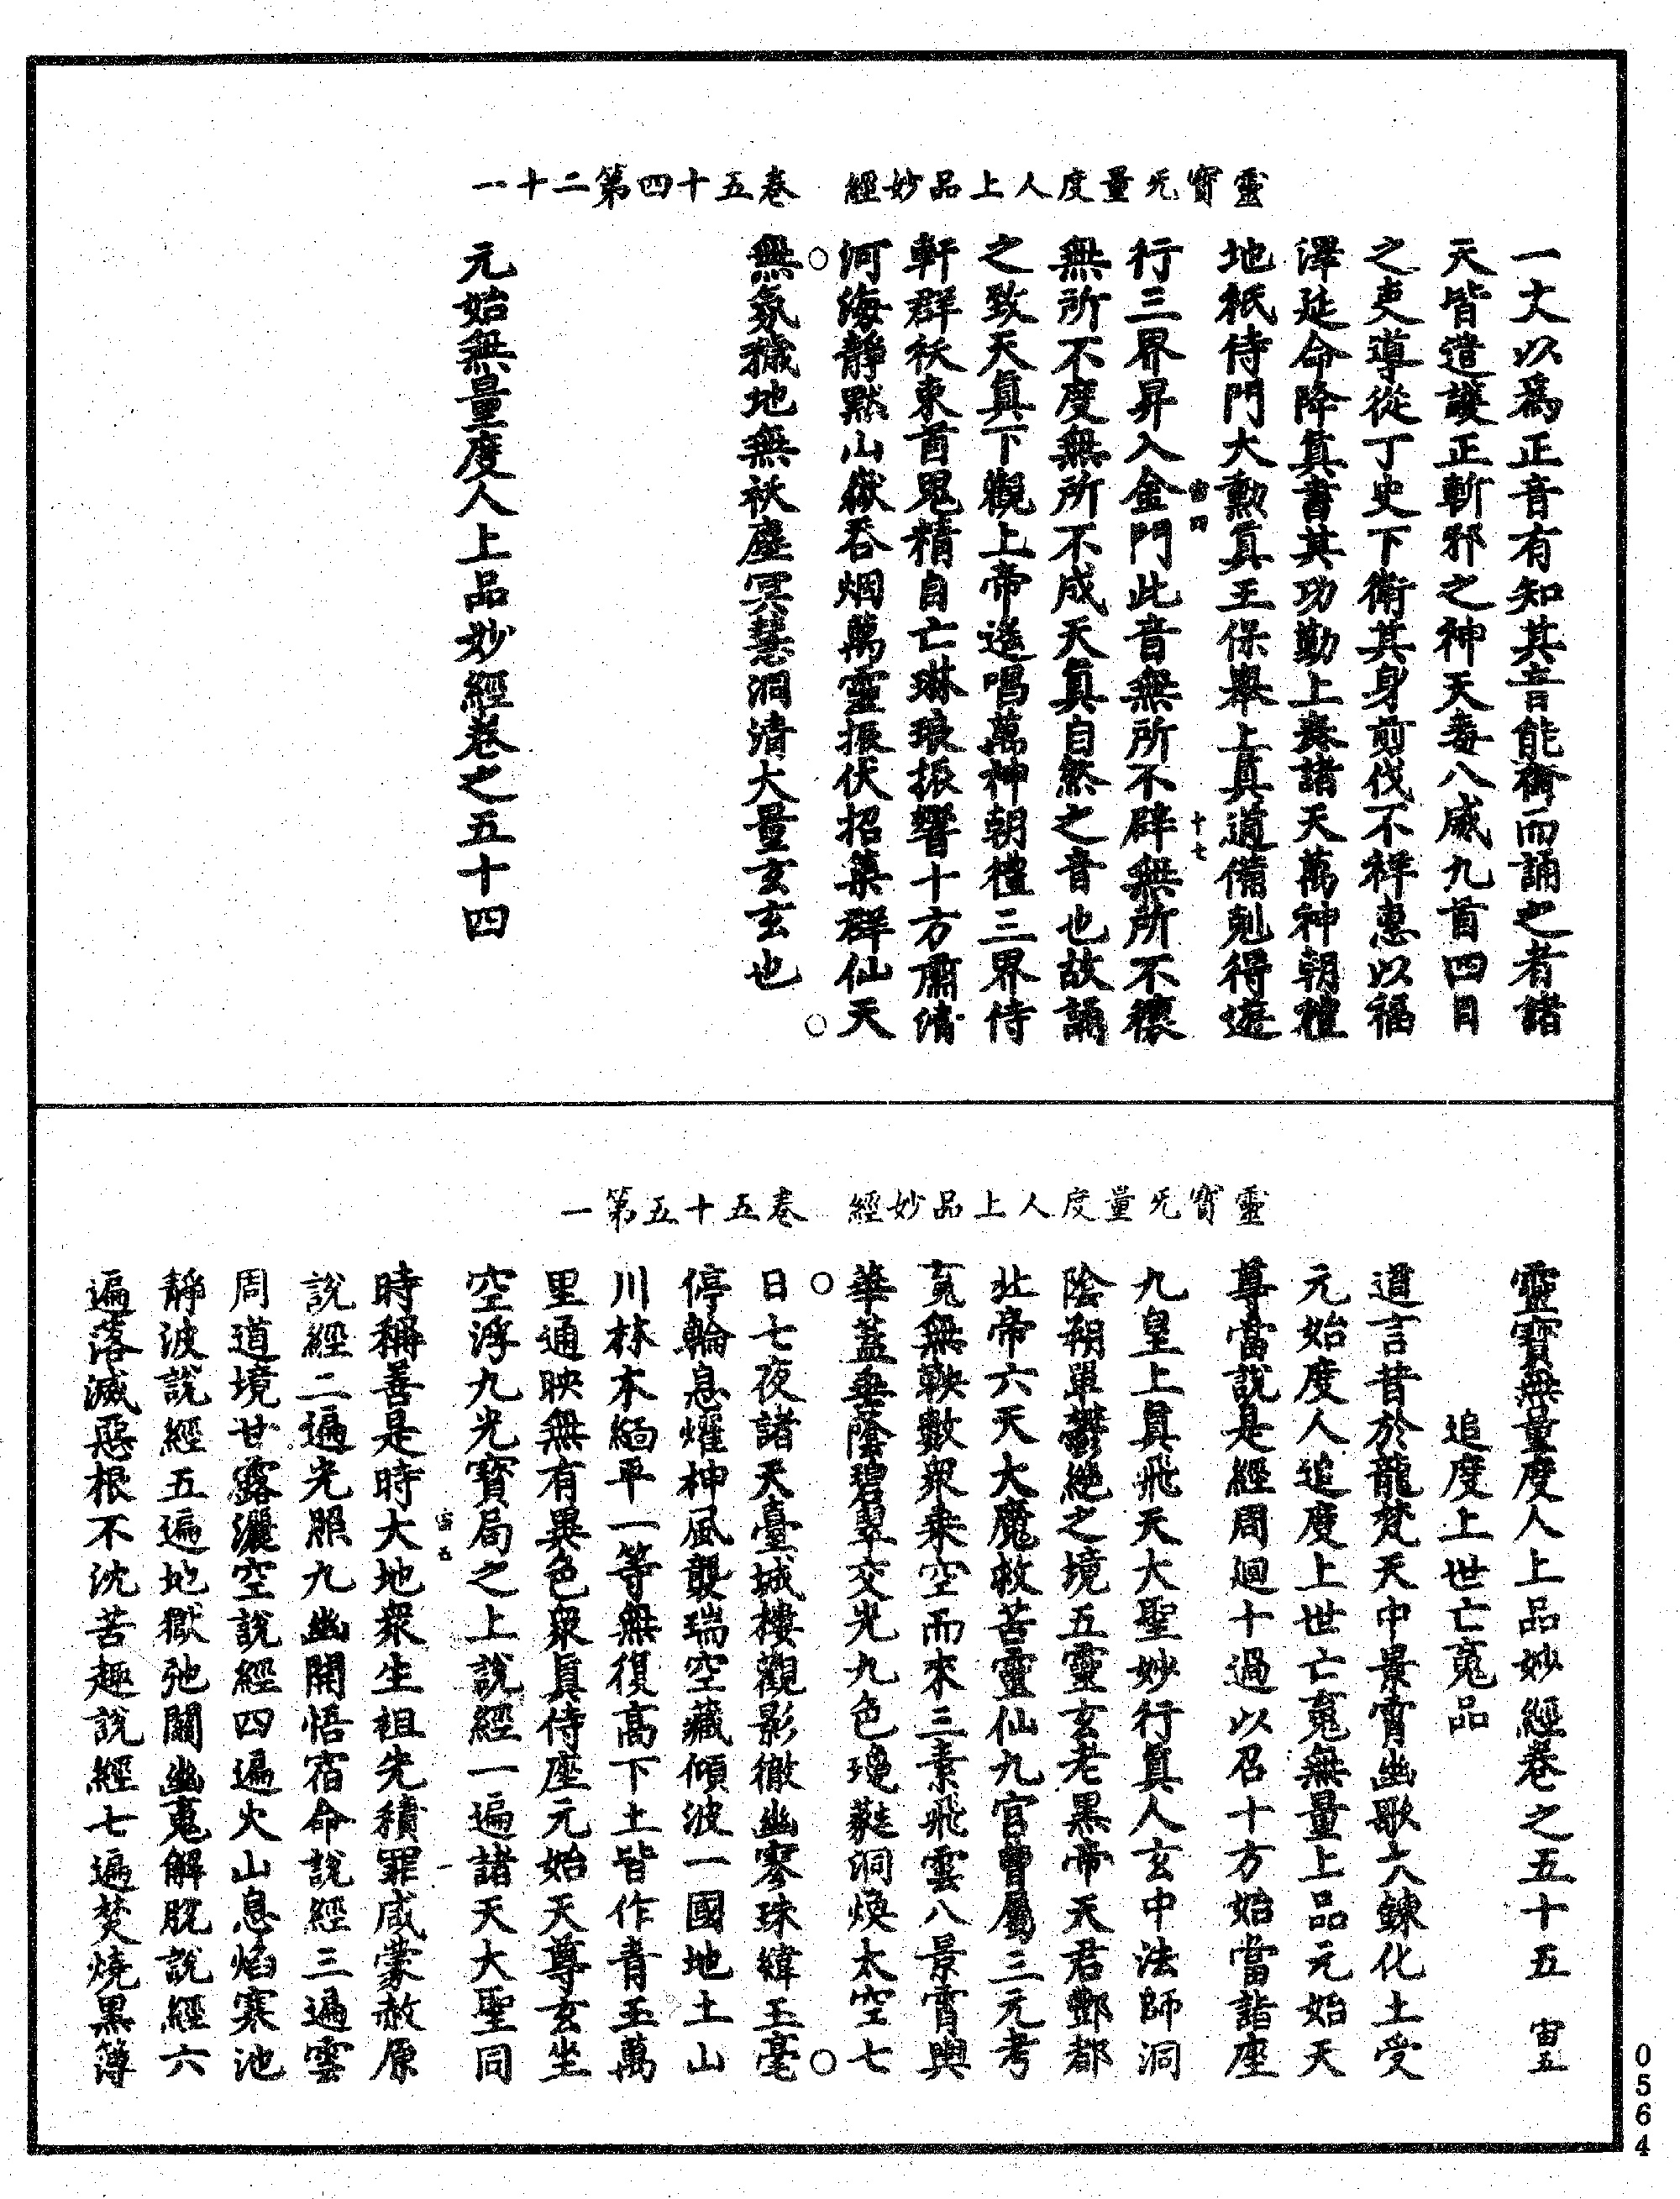 靈寶无量度人上品妙經　卷五十四第二十一
一丈以為正音有知其音能齎而誦之者諸
天皆遣護正斬邪之神天毒八威九首四目
之吏導從丁史下衛其身前伐不祥惠以福
澤延命降真書其功勤上奏諸天萬神朝禮
地祇侍門大勲真王保舉上真道備剋得遊
宙四　十七
行三界昇入金門此音無所不辟無所不禳
無所不度無所不成天真自然之音也故誦
之致天真下觀上帝遙唱萬神朝禮三界侍
軒群祅束首鬼精自亡琳琅振響十方肅清
河海靜默山嶽吞烟萬靈振伏招集群仙天
無氛穢地無祅塵冥慧洞清大量玄玄也
元始無量度人上品妙經卷之五十四
靈寶无量度人上品妙經　卷五十五第一
靈寶無量度人上品妙經卷之五十五　宙五
追度上世亡䰟品
道言昔於龍梵天中景霄幽歌大鍊化土受
元始度人追度上世亡䰟無量上品元始天
尊當說是經周迴十過以召十方始當詣座
九皇上真飛天大聖妙行真人玄中法師洞
陰朔單鬱絶之境五靈玄老黑帝天君酆都
北帝六天大魔救苦靈仙九官曹屬三元考
䰟無鞅數衆乘空而來三素飛雲八景霄輿
華蓋垂蔭碧翠交光九色瓊蕤洞煥太空七
日七夜諸天臺城樓觀影徹幽寥珠緯玉毫
停輪息燿神風襲瑞空藏傾波一國地土山
川林木緬平一等無復高下土皆作青玉萬
里通映無有異色衆真侍座元始天尊玄坐
空浮九光寶局之上說經一遍諸天大聖同
宙五　一
時稱善是時大地衆生祖先積罪咸蒙赦原
說經二遍光照九幽開悟宿命說經三遍雲
周道境甘露灑空說經四遍火山息焰寒池
靜波說經五遍地獄弛關幽䰟解脫說經六
遍落滅惡根不沈苦趣說經七遍焚燒黑簿
0564